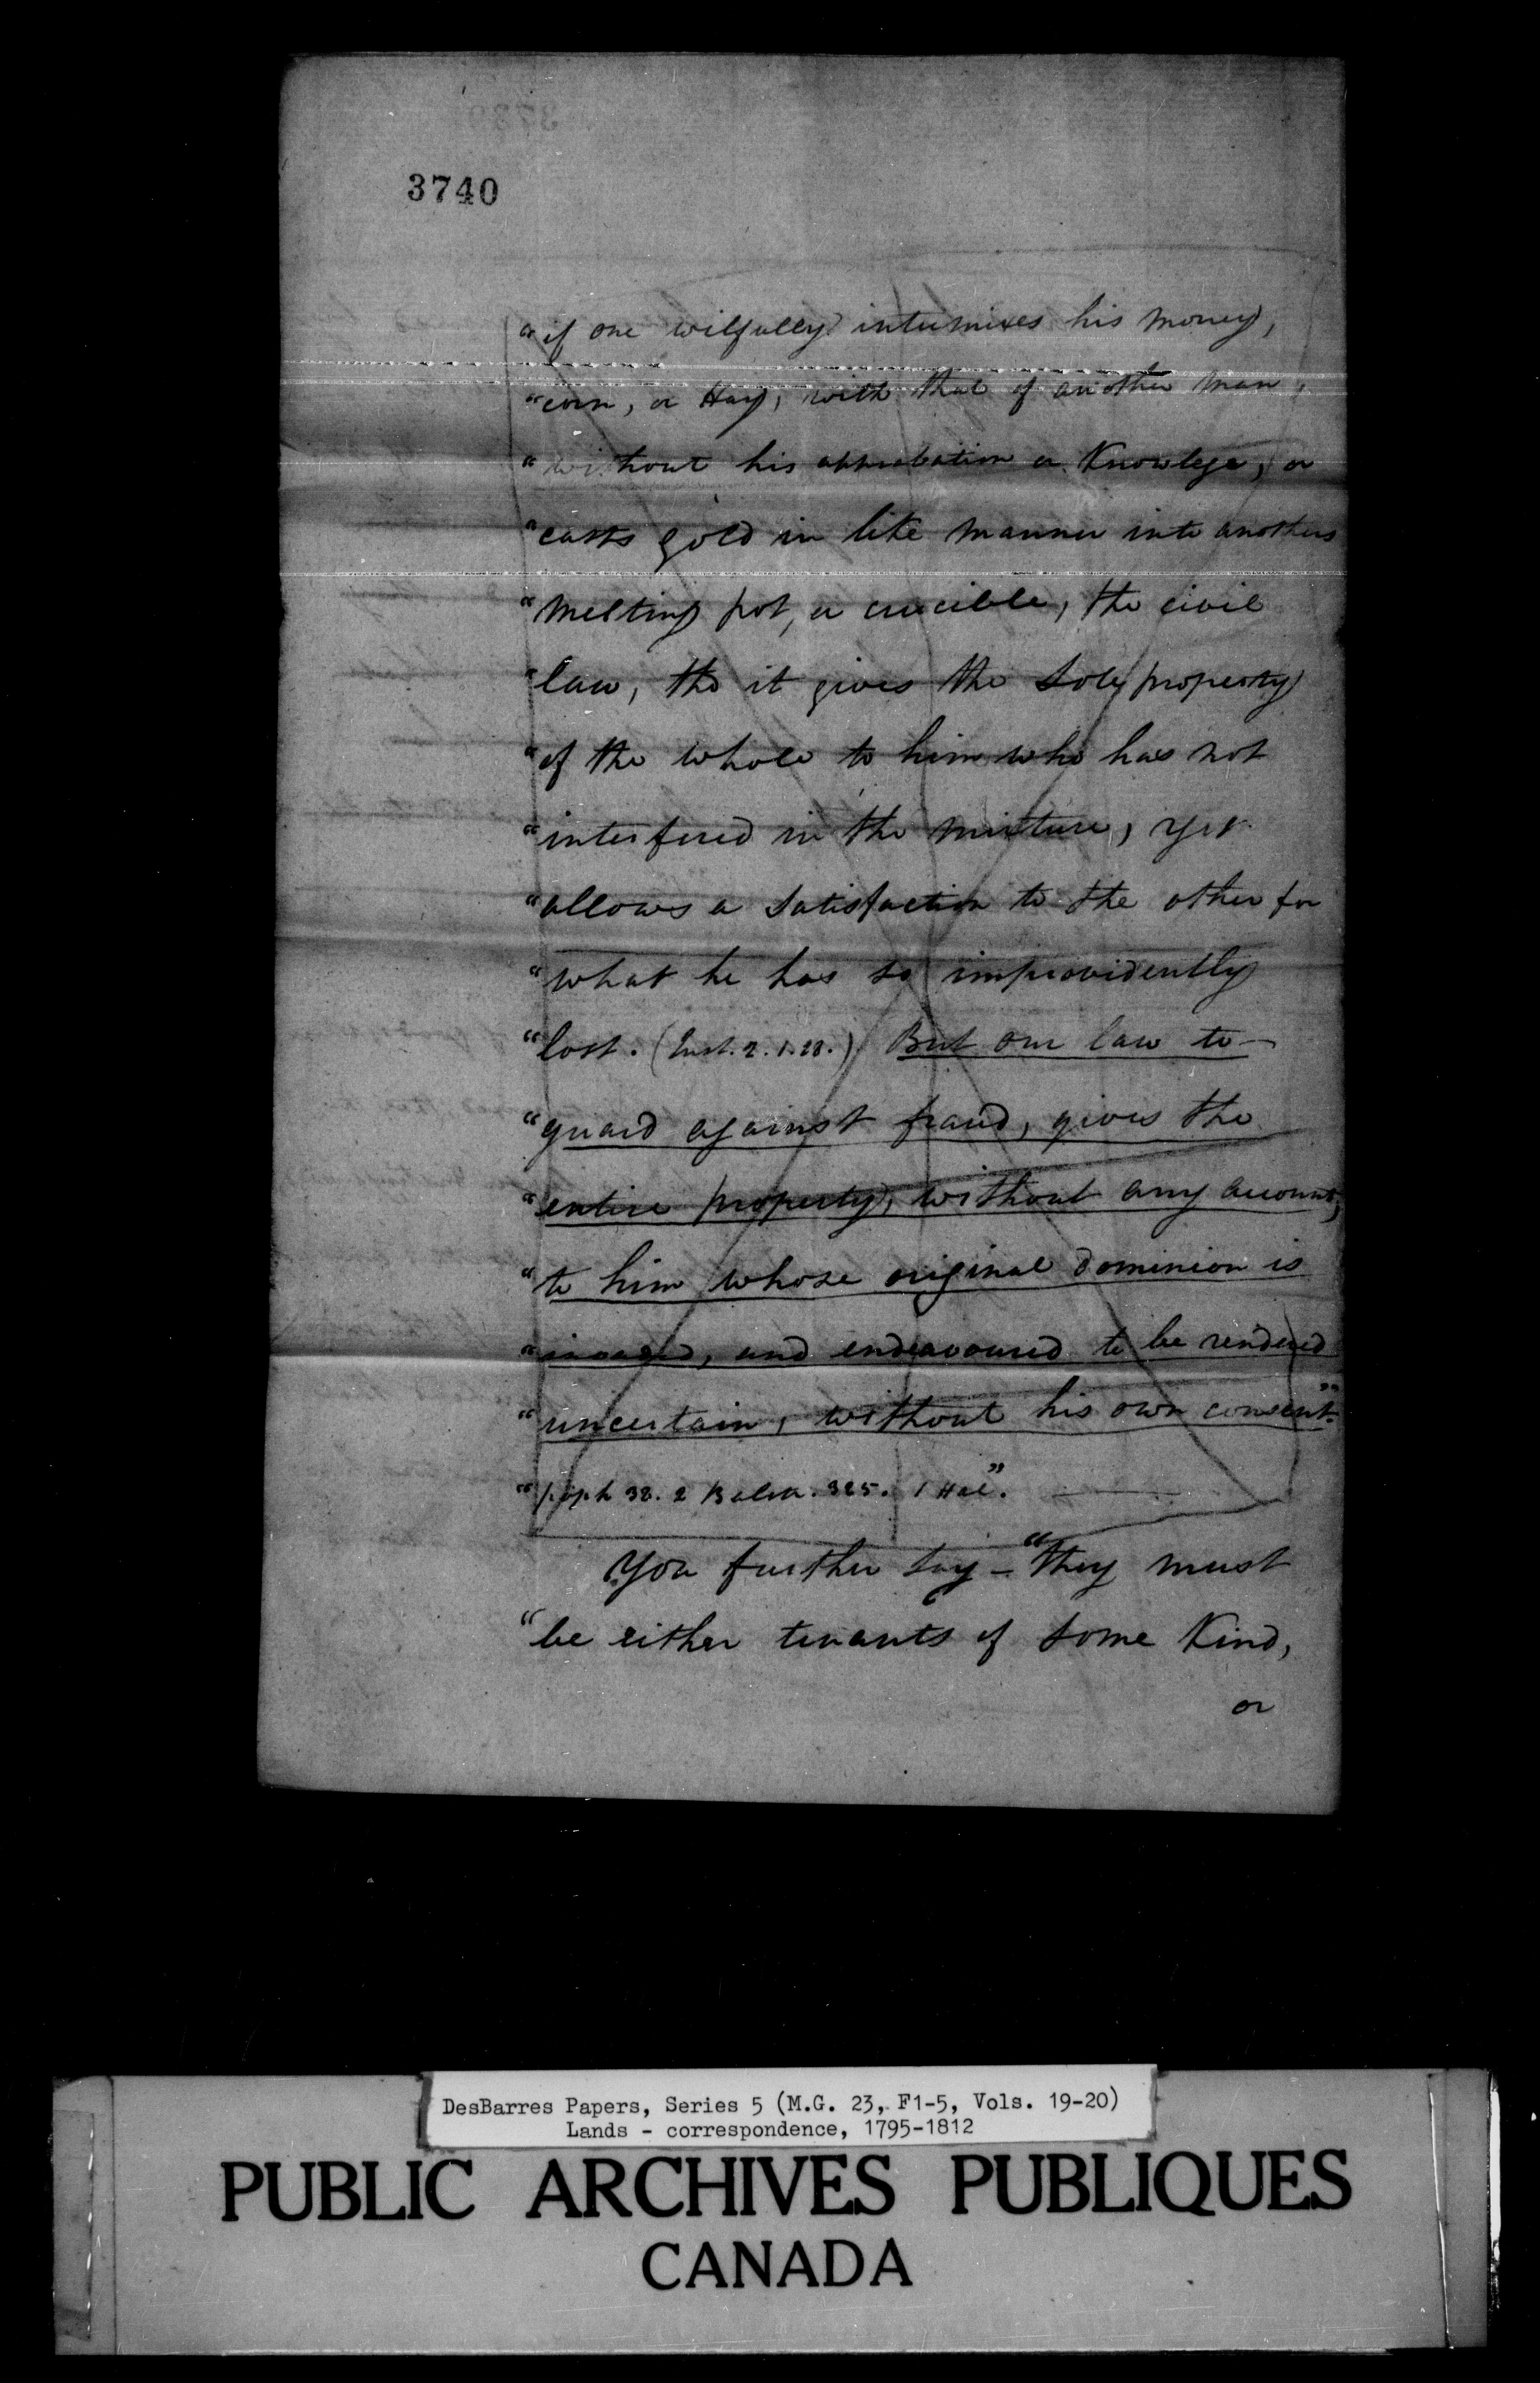 3740
"if one wilfully intermixes his money,
"corn, or Hay, with that of another man,
"without his approbation or Knowlege, or
"casts gold in like manner into anothers
"melting pot, or crucible, the civil
"law, tho it gives the Sole property
"of the whole to him who has not
"interfered in the mixture, yet
"allows a Satisfaction to the other for
"what he has so improvidently
"lost. (Inst. 2. 1. 28.) But our law to
"guard against fraud, gives the
"entire property, without any account,
"to him whose original dominion is
"invaded, and endeavoured to be rendered
"uncertain, without his own consent."
"poph 38. 2 Bulstr. 325. 1 Hal".
You further Say – "they must
"be either tenants of Some Kind,
or
DesBarres Papers, Series 5 (M.G. 23, F1-5, Vols. 19-20)
Lands - correspondence, 1795-1812
PUBLIC ARCHIVES PUBLIQUES
CANADA